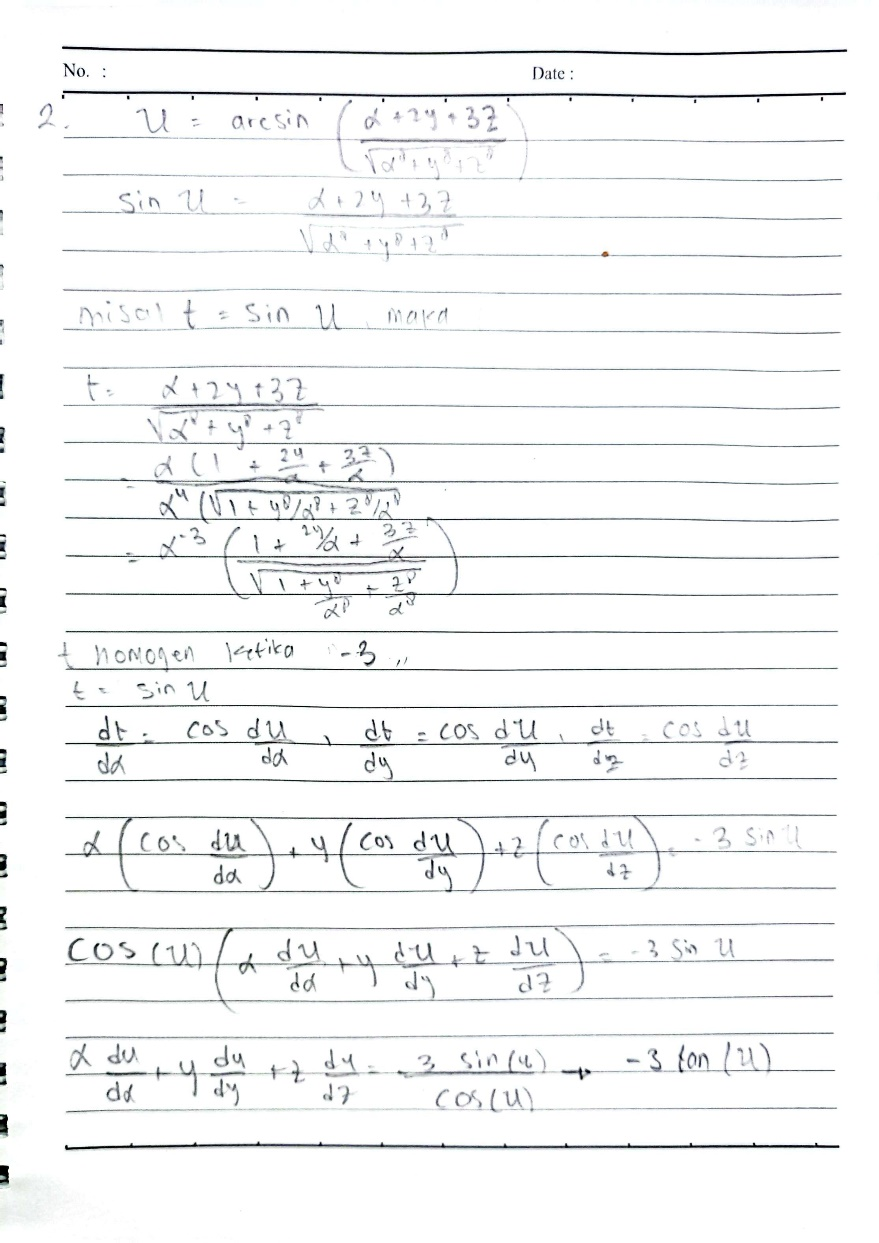 No. :
Date :
2. U = arcsin ( (α + 2y + 3z) / √(α⁸ + y⁸ + z⁸) )
sin U = (α + 2y + 3z) / √(α⁸ + y⁸ + z⁸)
misal t = sin U, maka
t = (α + 2y + 3z) / √(α⁸ + y⁸ + z⁸)
= α (1 + 2y/α + 3z/α) / α⁴ (√1 + y⁸/α⁸ + z⁸/α⁸
= α⁻³ ( (1 + 2y/α + 3z/α) / √(1 + y⁸/α⁸ + z⁸/α⁸) )
t homogen ketika -3 ,,
t = sin U
dt/dα = cos du/dα , dt/dy = cos du/dy , dt/dz = cos du/dz
α (cos du/dα) + y (cos du/dy) + z (cos du/dz) = -3 sin U
cos (U) (α du/dα + y du/dy + z du/dz) = -3 sin U
α du/dα + y du/dy + z du/dz = -3 sin(u) / cos(U) → -3 tan (U)